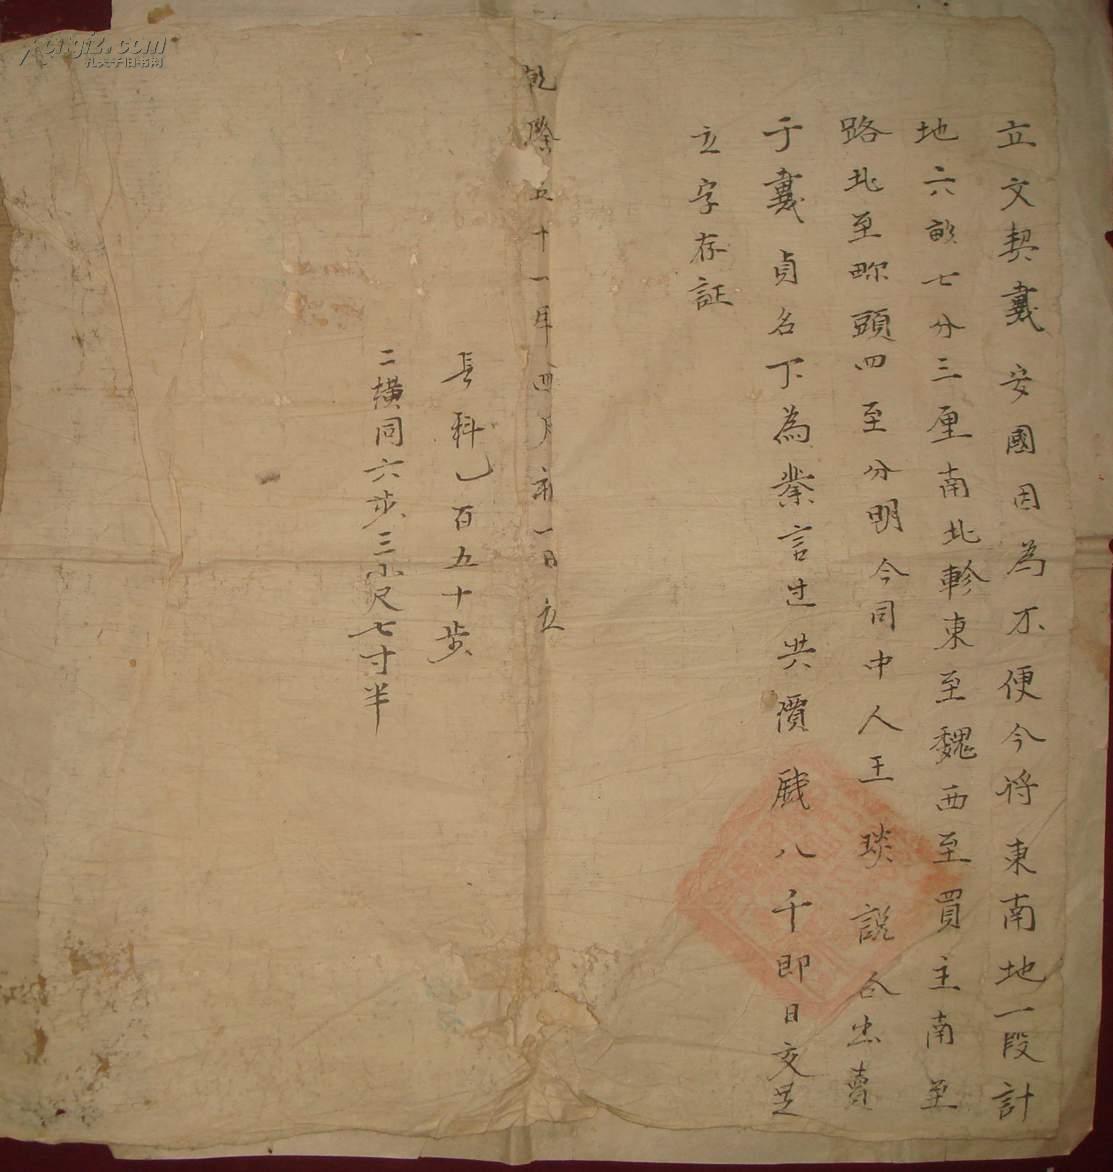 立文契戴安國因為不便今將東南地一段計
地六畝七分三厘南北畛東至魏西至買主南至
路北至畛頭四至分明今同中人王琰說合出賣
于戴貞名下為業言过共價戝八千即日交足
立字存証
乾隆五十一年四月初一日立
長科乙百五十步
二横同六步三小尺七寸半
孔夫子旧书网